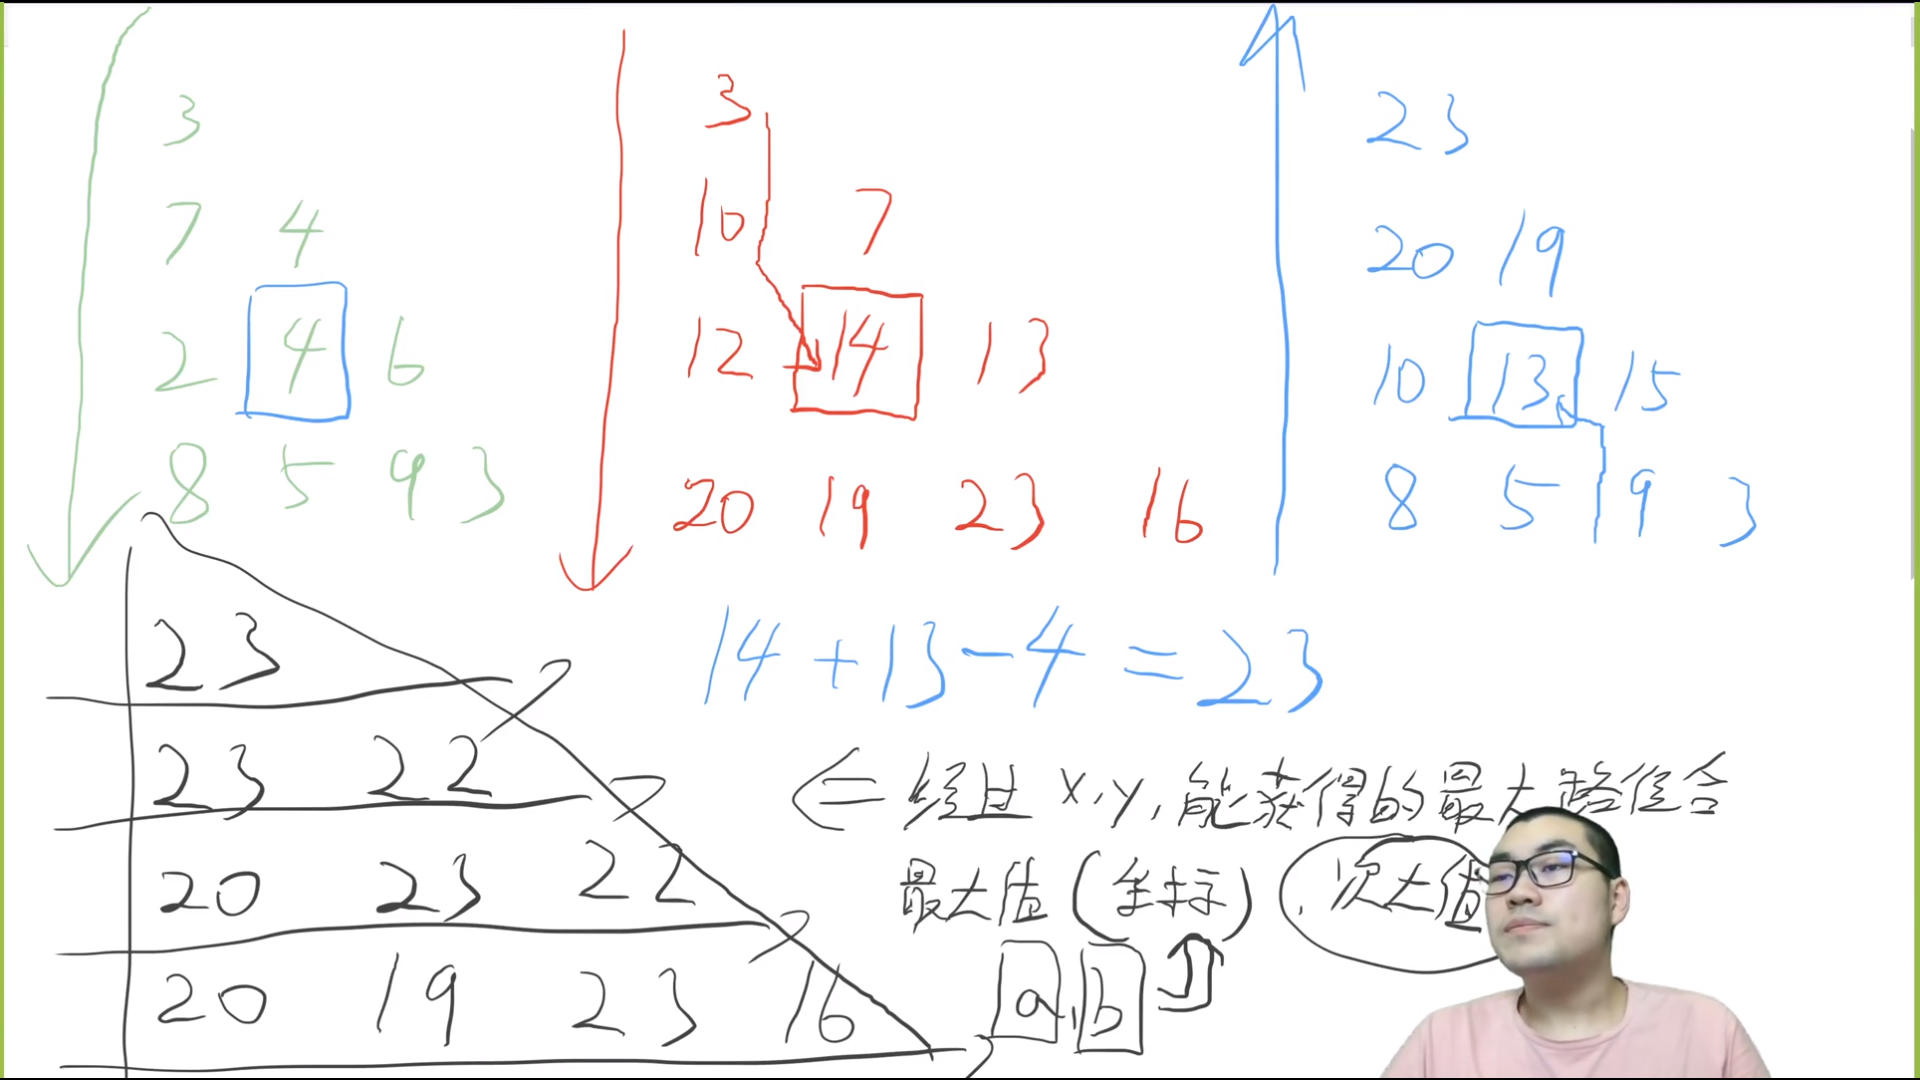 3
7 4
2 4 6
8 5 9 3
3
10 7
12 14 13
20 19 23 16
23
20 19
10 13 15
8 5 9 3
14+13-4=23
23
23 22
20 23 22
20 19 23 16
经过 x,y,能获得的最大路径合
最大值(坐标),次大值
a,b